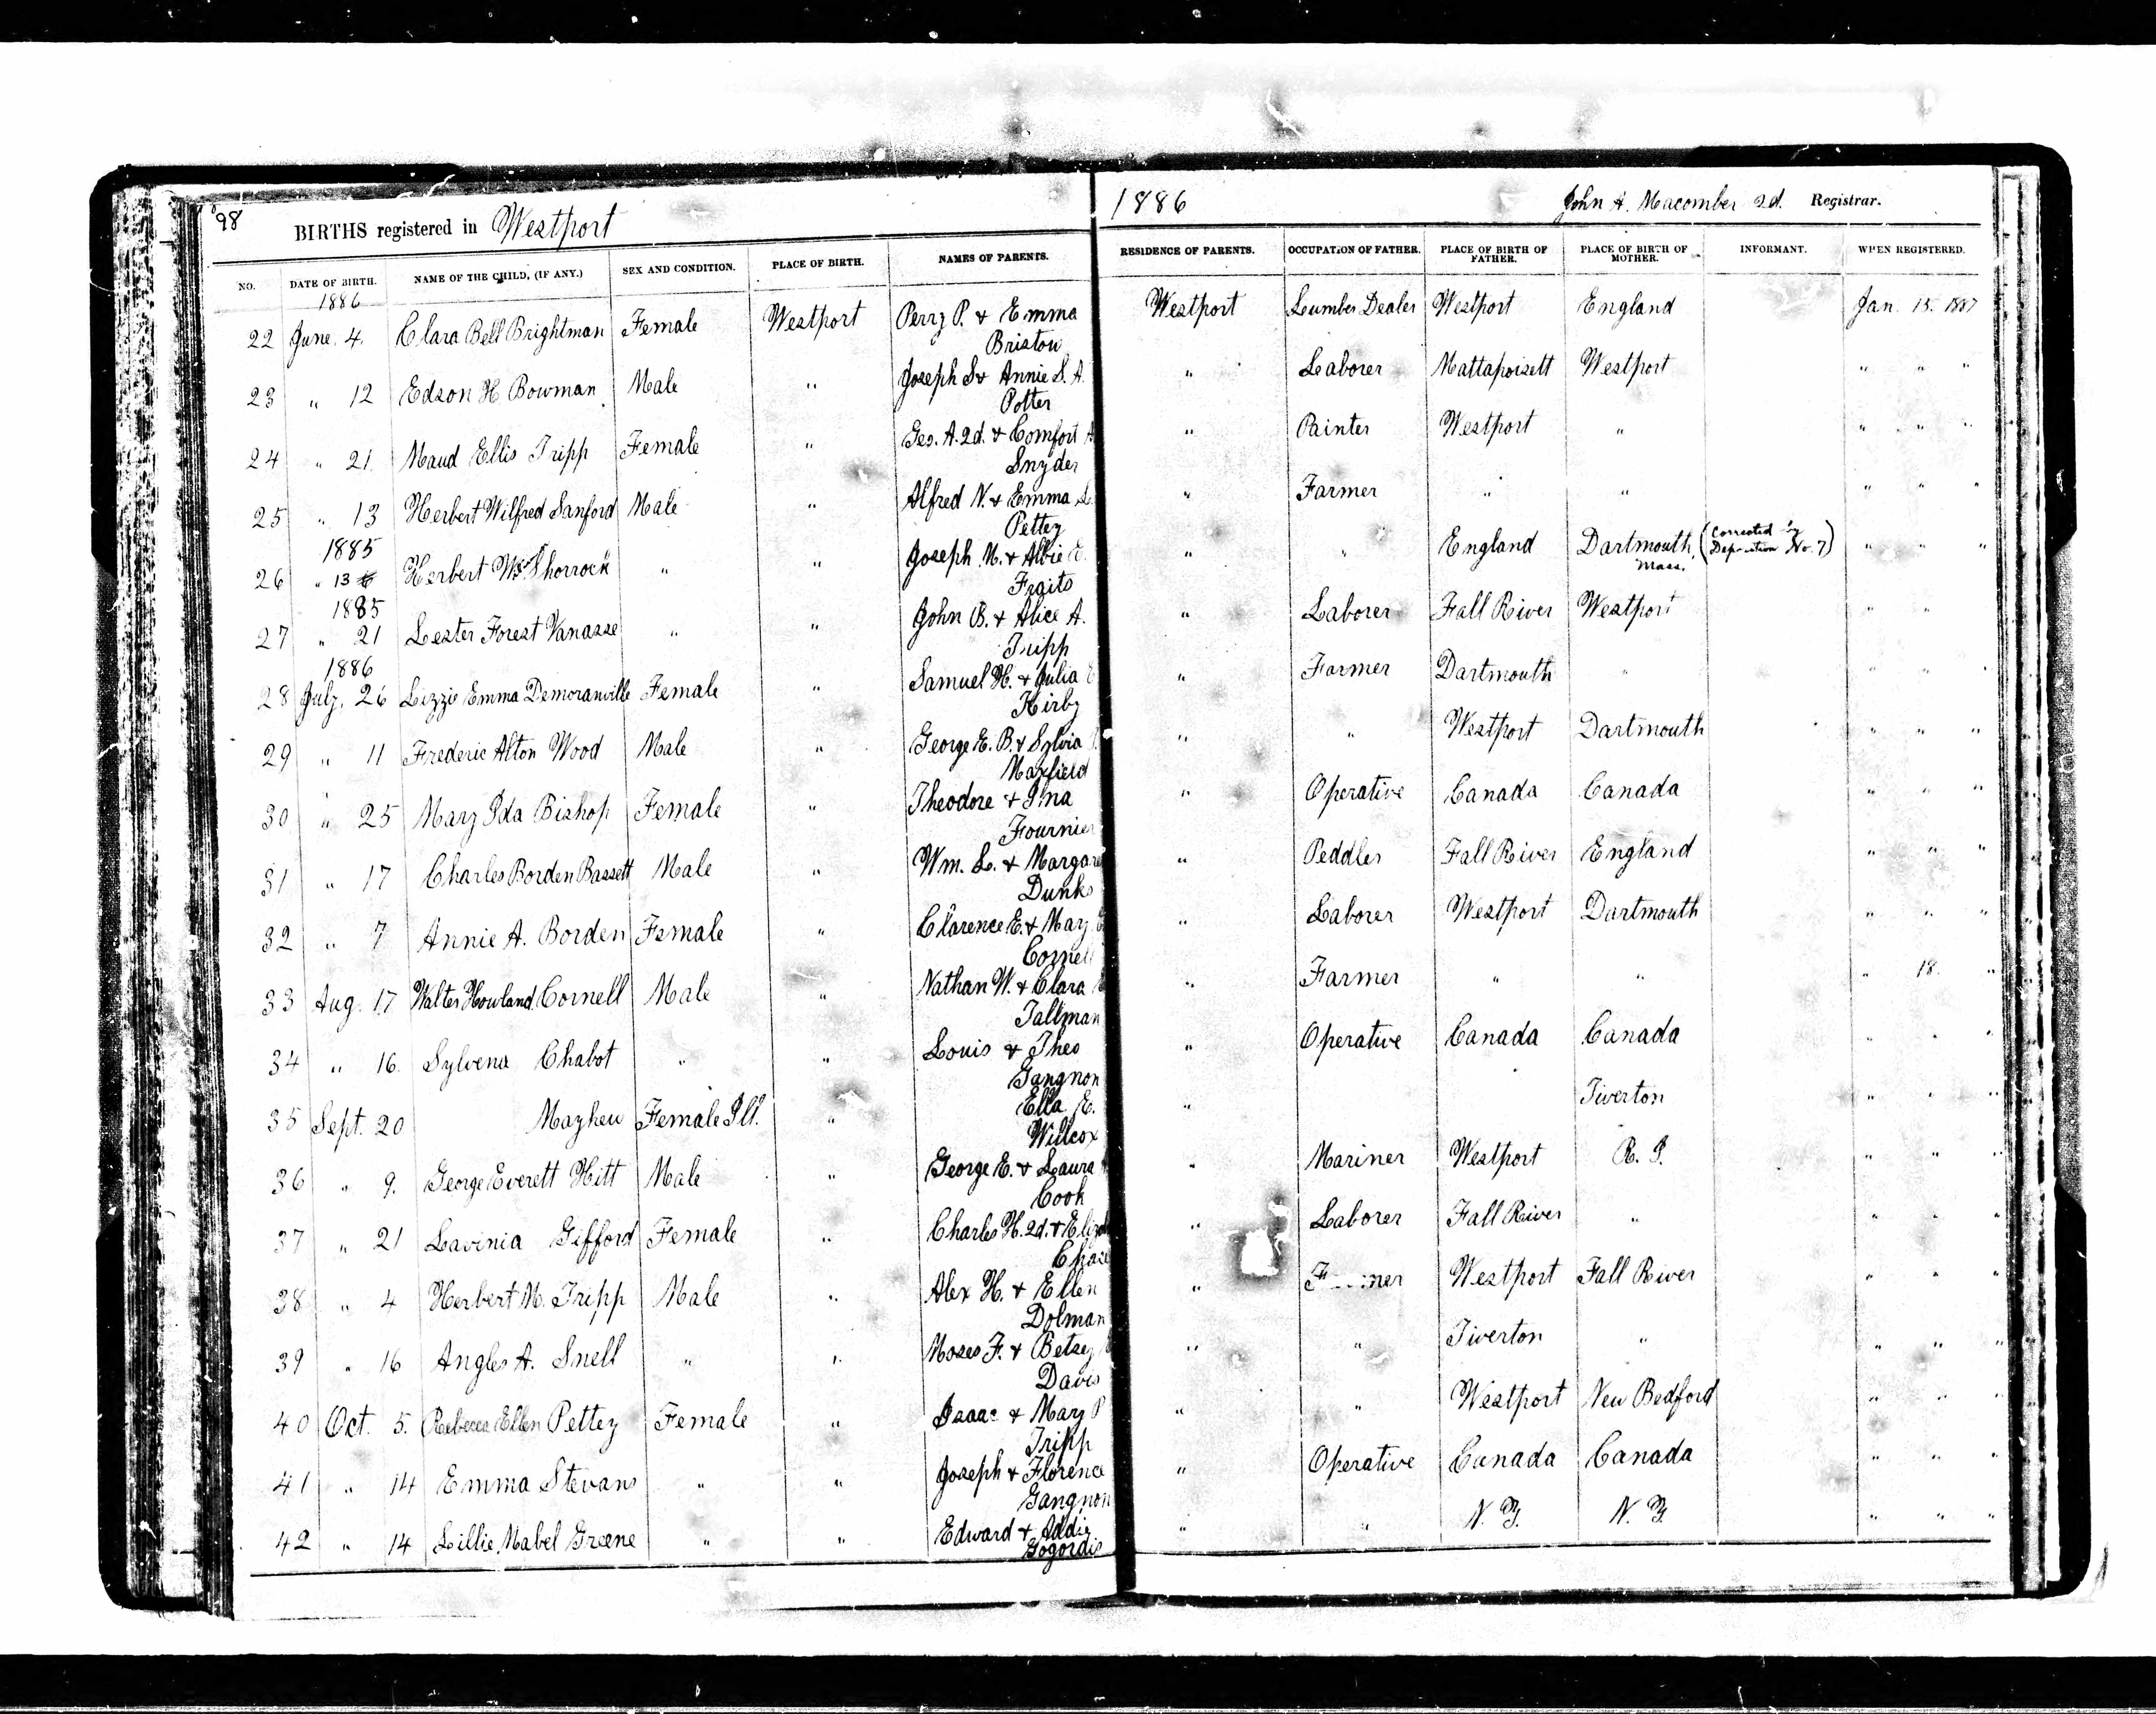 98
BIRTHS registered in Westport
1886
John A. Macomber 2d. Registrar.
NO. DATE OF BIRTH. NAME OF THE CHILD, (IF ANY.) SEX AND CONDITION. PLACE OF BIRTH. NAMES OF PARENTS. RESIDENCE OF PARENTS. OCCUPATION OF FATHER. PLACE OF BIRTH OF FATHER. PLACE OF BIRTH OF MOTHER. INFORMANT. WHEN REGISTERED.
1886
22 June. 4. Clara Bell Brightman Female Westport Perry P. & Emma Westport Lumber Dealer Westport England Jan. 15. 1887
Bristow
23 " 12 Edson H. Bowman Male " Joseph S & Annie S. A. " Laborer Mattapoisett Westport " " "
Potter
24 " 21 Maud Ellis Tripp Female " Geo. A. 2d. & Comfort A " Painter Westport " " " "
Snyder
25 " 13 Herbert Wilfred Sanford Male " Alfred N. & Emma L. " Farmer " " " " "
Pettey
1885
26 " 13 Herbert Wm Shorrock " " Joseph M. & Albie E. " " England Dartmouth, Mass. (Corrected by Deposition No. 7) " " "
Fraits
1885
27 " 21 Lester Forest Vanasse " " John B. & Alice A. " Laborer Fall River Westport " "
Tripp
1886
28 July. 26 Lizzie Emma Demoranville Female " Samuel H. & Julia E " Farmer Dartmouth " " " "
Kirby
29 " 11 Frederic Alton Wood Male " George E. B. & Sylvia " " Westport Dartmouth " " "
Maxfield
30 " 25 Mary Ida Bishop Female " Theodore & Ina " Operative Canada Canada " " "
Fournier
31 " 17 Charles Borden Bassett Male " Wm. L. & Margare " Peddler Fall River England " " "
Dunks
32 " 7 Annie A. Borden Female " Clarence E. & May " Laborer Westport Dartmouth " " "
Cornell
33 Aug. 17 Walter Howland Cornell Male " Nathan W. & Clara " Farmer " " " 18. "
Tallman
34 " 16. Sylvena Chabot " " Louis & Theo " Operative Canada Canada " " "
Gangnon
35 Sept. 20 Mayhew Female Ill. " Ella E. " Tiverton " " "
Willcox
36 " 9. George Everett Hitt Male " George E. & Laura " Mariner Westport R. I. " " "
Cook
37 " 21 Lavinia Gifford Female " Charles H. 2d. & Eliza " Laborer Fall River " " " "
Chase
38 " 4 Herbert M. Tripp Male " Alex H. & Ellen " F mer Westport Fall River " " "
Dolman
39 " 16 Angles A. Snell " " Moses F. & Betsey " " Tiverton " " " "
Davis
40 Oct. 5. Rebecca Ellen Pettey Female " Isaac & Mary P " " Westport New Bedford " " "
Tripp
41 " 14 Emma Stevans " " Joseph & Florence " Operative Canada Canada " " "
Gangnon
42 " 14 Lillie Mabel Greene " " Edward & Addie " " N. Y. N. Y. " " "
Gogordis